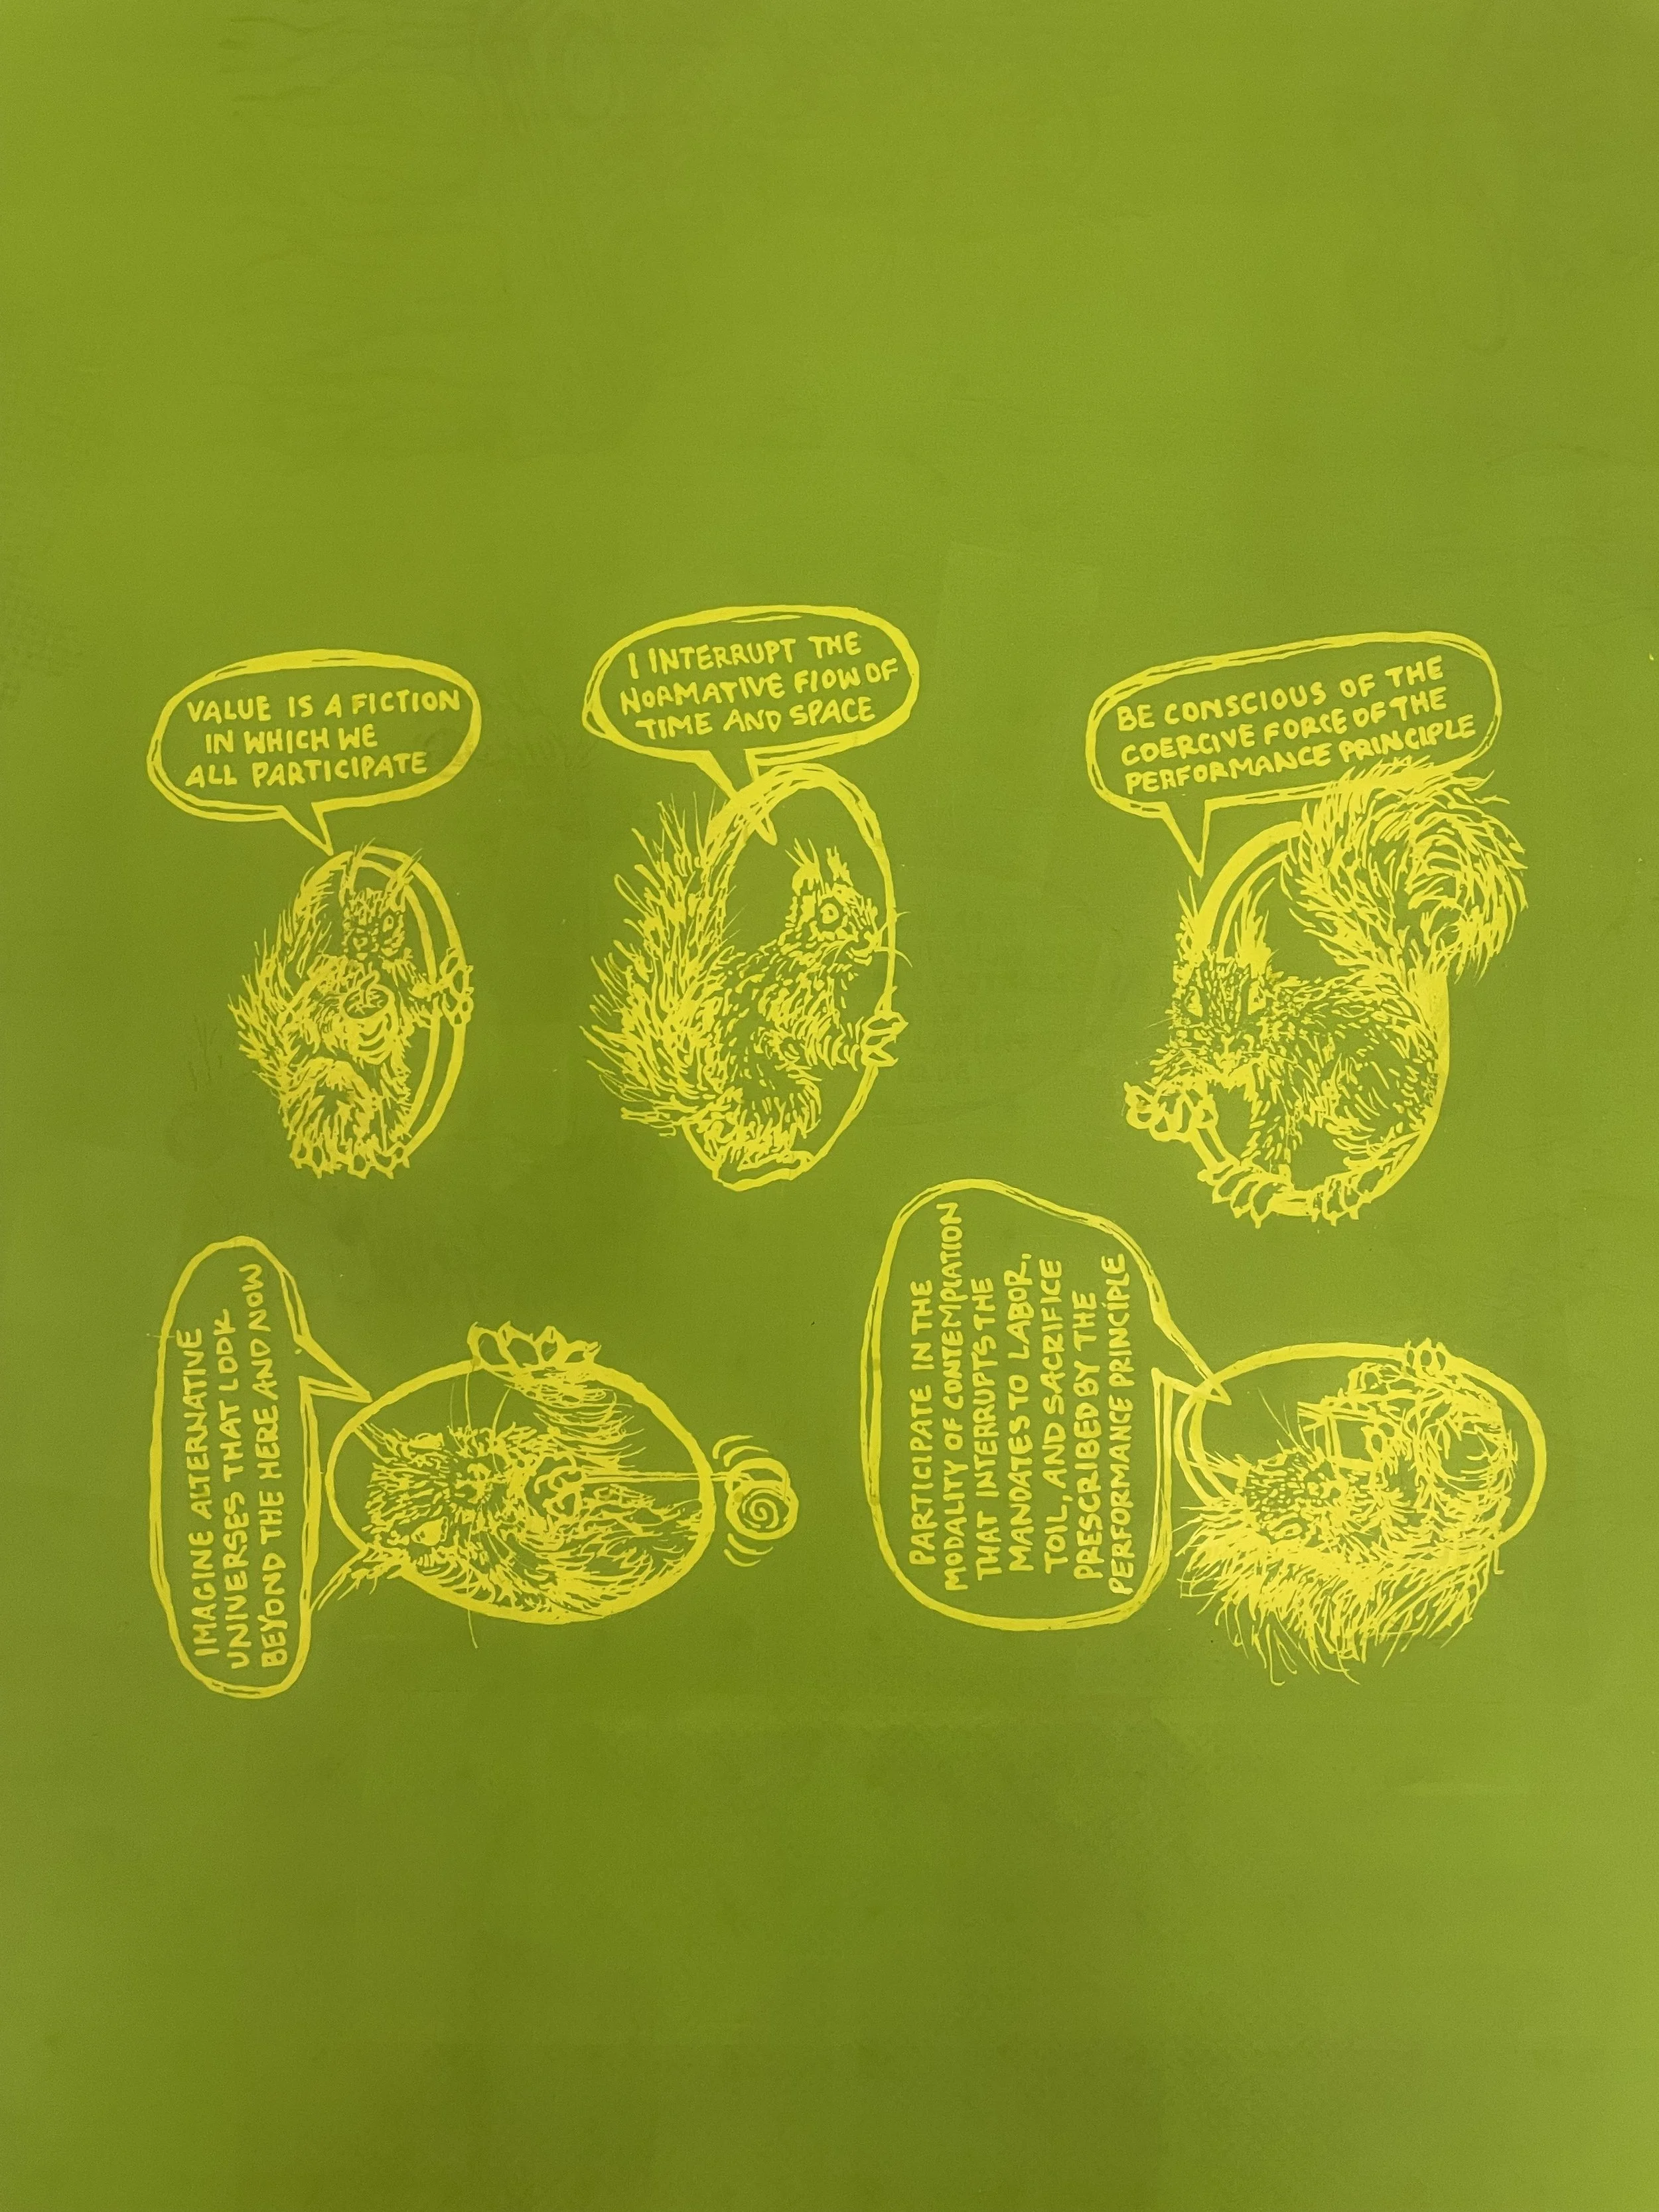 VALUE IS A FICTION
IN WHICH WE
ALL PARTICIPATE
I INTERRUPT THE
NORMATIVE FLOW OF
TIME AND SPACE
BE CONSCIOUS OF THE
COERCIVE FORCE OF THE
PERFORMANCE PRINCIPLE
IMAGINE ALTERNATIVE
UNIVERSES THAT LOOK
BEYOND THE HERE AND NOW
PARTICIPATE IN THE
MODALITY OF CONTEMPLATION
THAT INTERRUPTS THE
MANDATES TO LABOR,
TOIL, AND SACRIFICE
PRESCRIBED BY THE
PERFORMANCE PRINCIPLE